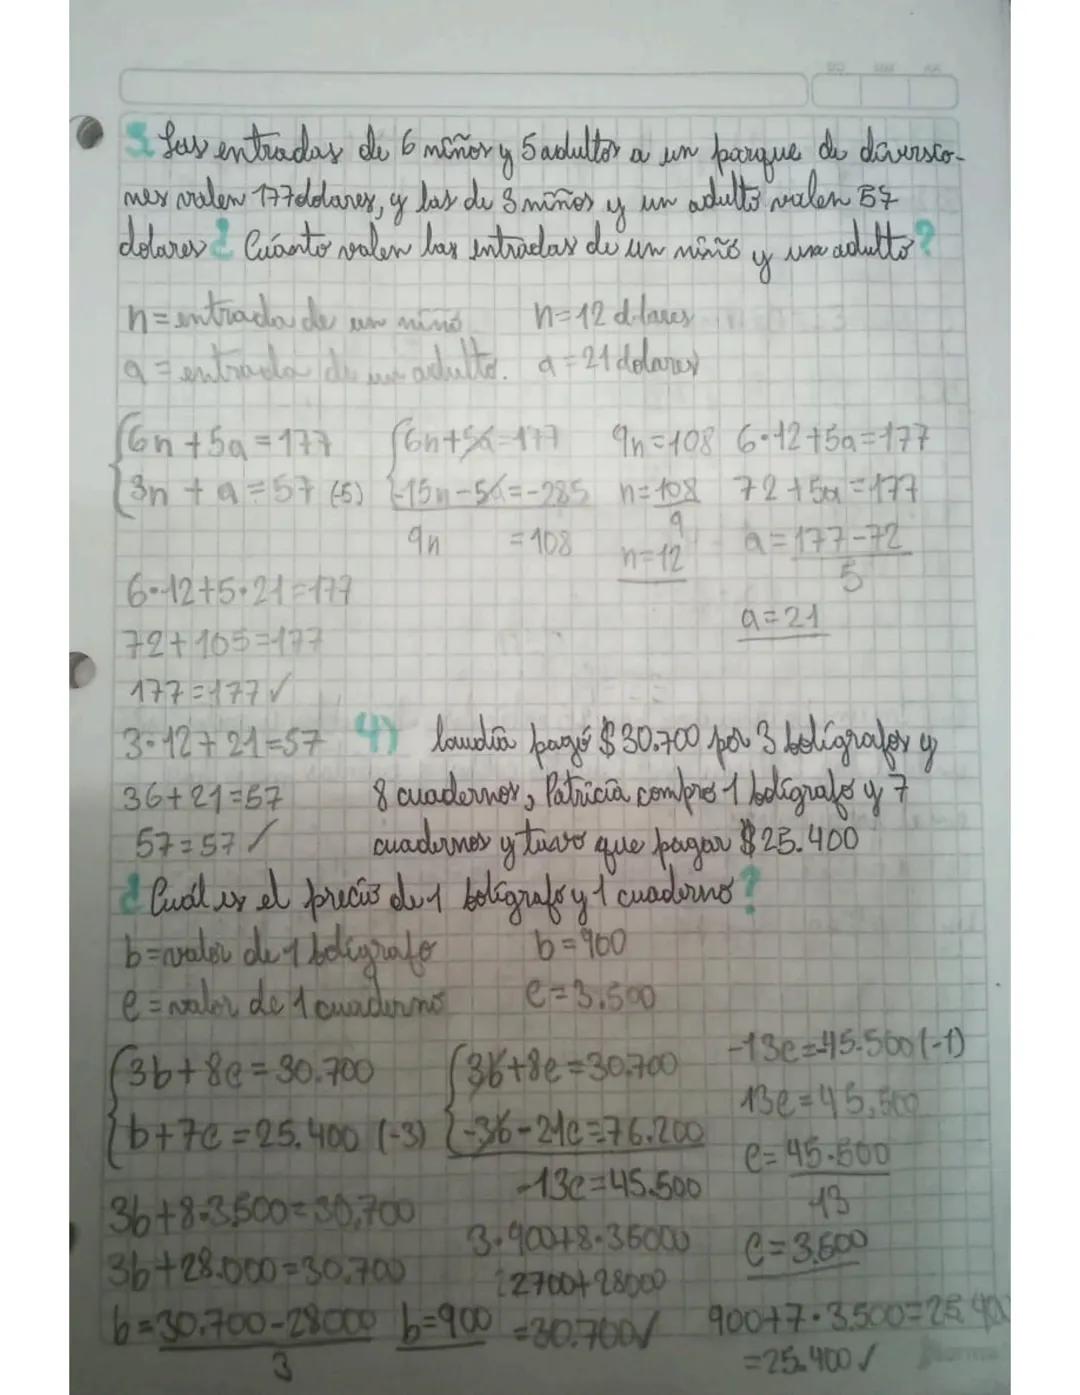 3. Las entradas de 6 niños y 5 adultos a un parque de diversio-
nes valen 177 dolares, y las de 3 niños y un adulto valen 57
dolares ¿Cuánto valen las entradas de un niño y un adulto?
n = entrada de un niño
n = 12 dolares
a = entrada de un adulto.
a = 21 dolares
6n + 5a = 177
3n + a = 57 (-5)
6n + 5a = 177
-15n - 5a = -285
9n = 108
9n = 108
n = 108
9
n = 12
6·12 + 5a = 177
72 + 5a = 177
a = 177 - 72
5
a = 21
6·12 + 5·21 = 177
72 + 105 = 177
177 = 177 ✓
3·12 + 21 = 57
36 + 21 = 57
57 = 57 ✓
4) laudia pagó $30.700 por 3 bolígrafos y
8 cuadernos, Patricia compro 1 bolígrafo y 7
cuadernos y tuvo que pagar $25.400
¿Cuál es el precio de 1 bolígrafo y 1 cuaderno?
b = valor de 1 bolígrafo
b = 900
c = valor de 1 cuaderno
c = 3.500
3b + 8c = 30.700
b + 7c = 25.400 (-3)
3b + 8c = 30.700
-3b - 21c = 76.200
-13c = 45.500
-13c = -45.500 (-1)
13c = 45.500
c = 45.500
13
c = 3.500
3b + 8·3.500 = 30.700
3b + 28.000 = 30.700
b = 30.700 - 28000
3
b = 900
3·900 + 8·35000
2700 + 28000
= 30.700 ✓
900 + 7·3.500 = 25.400
= 25.400 ✓
Norma